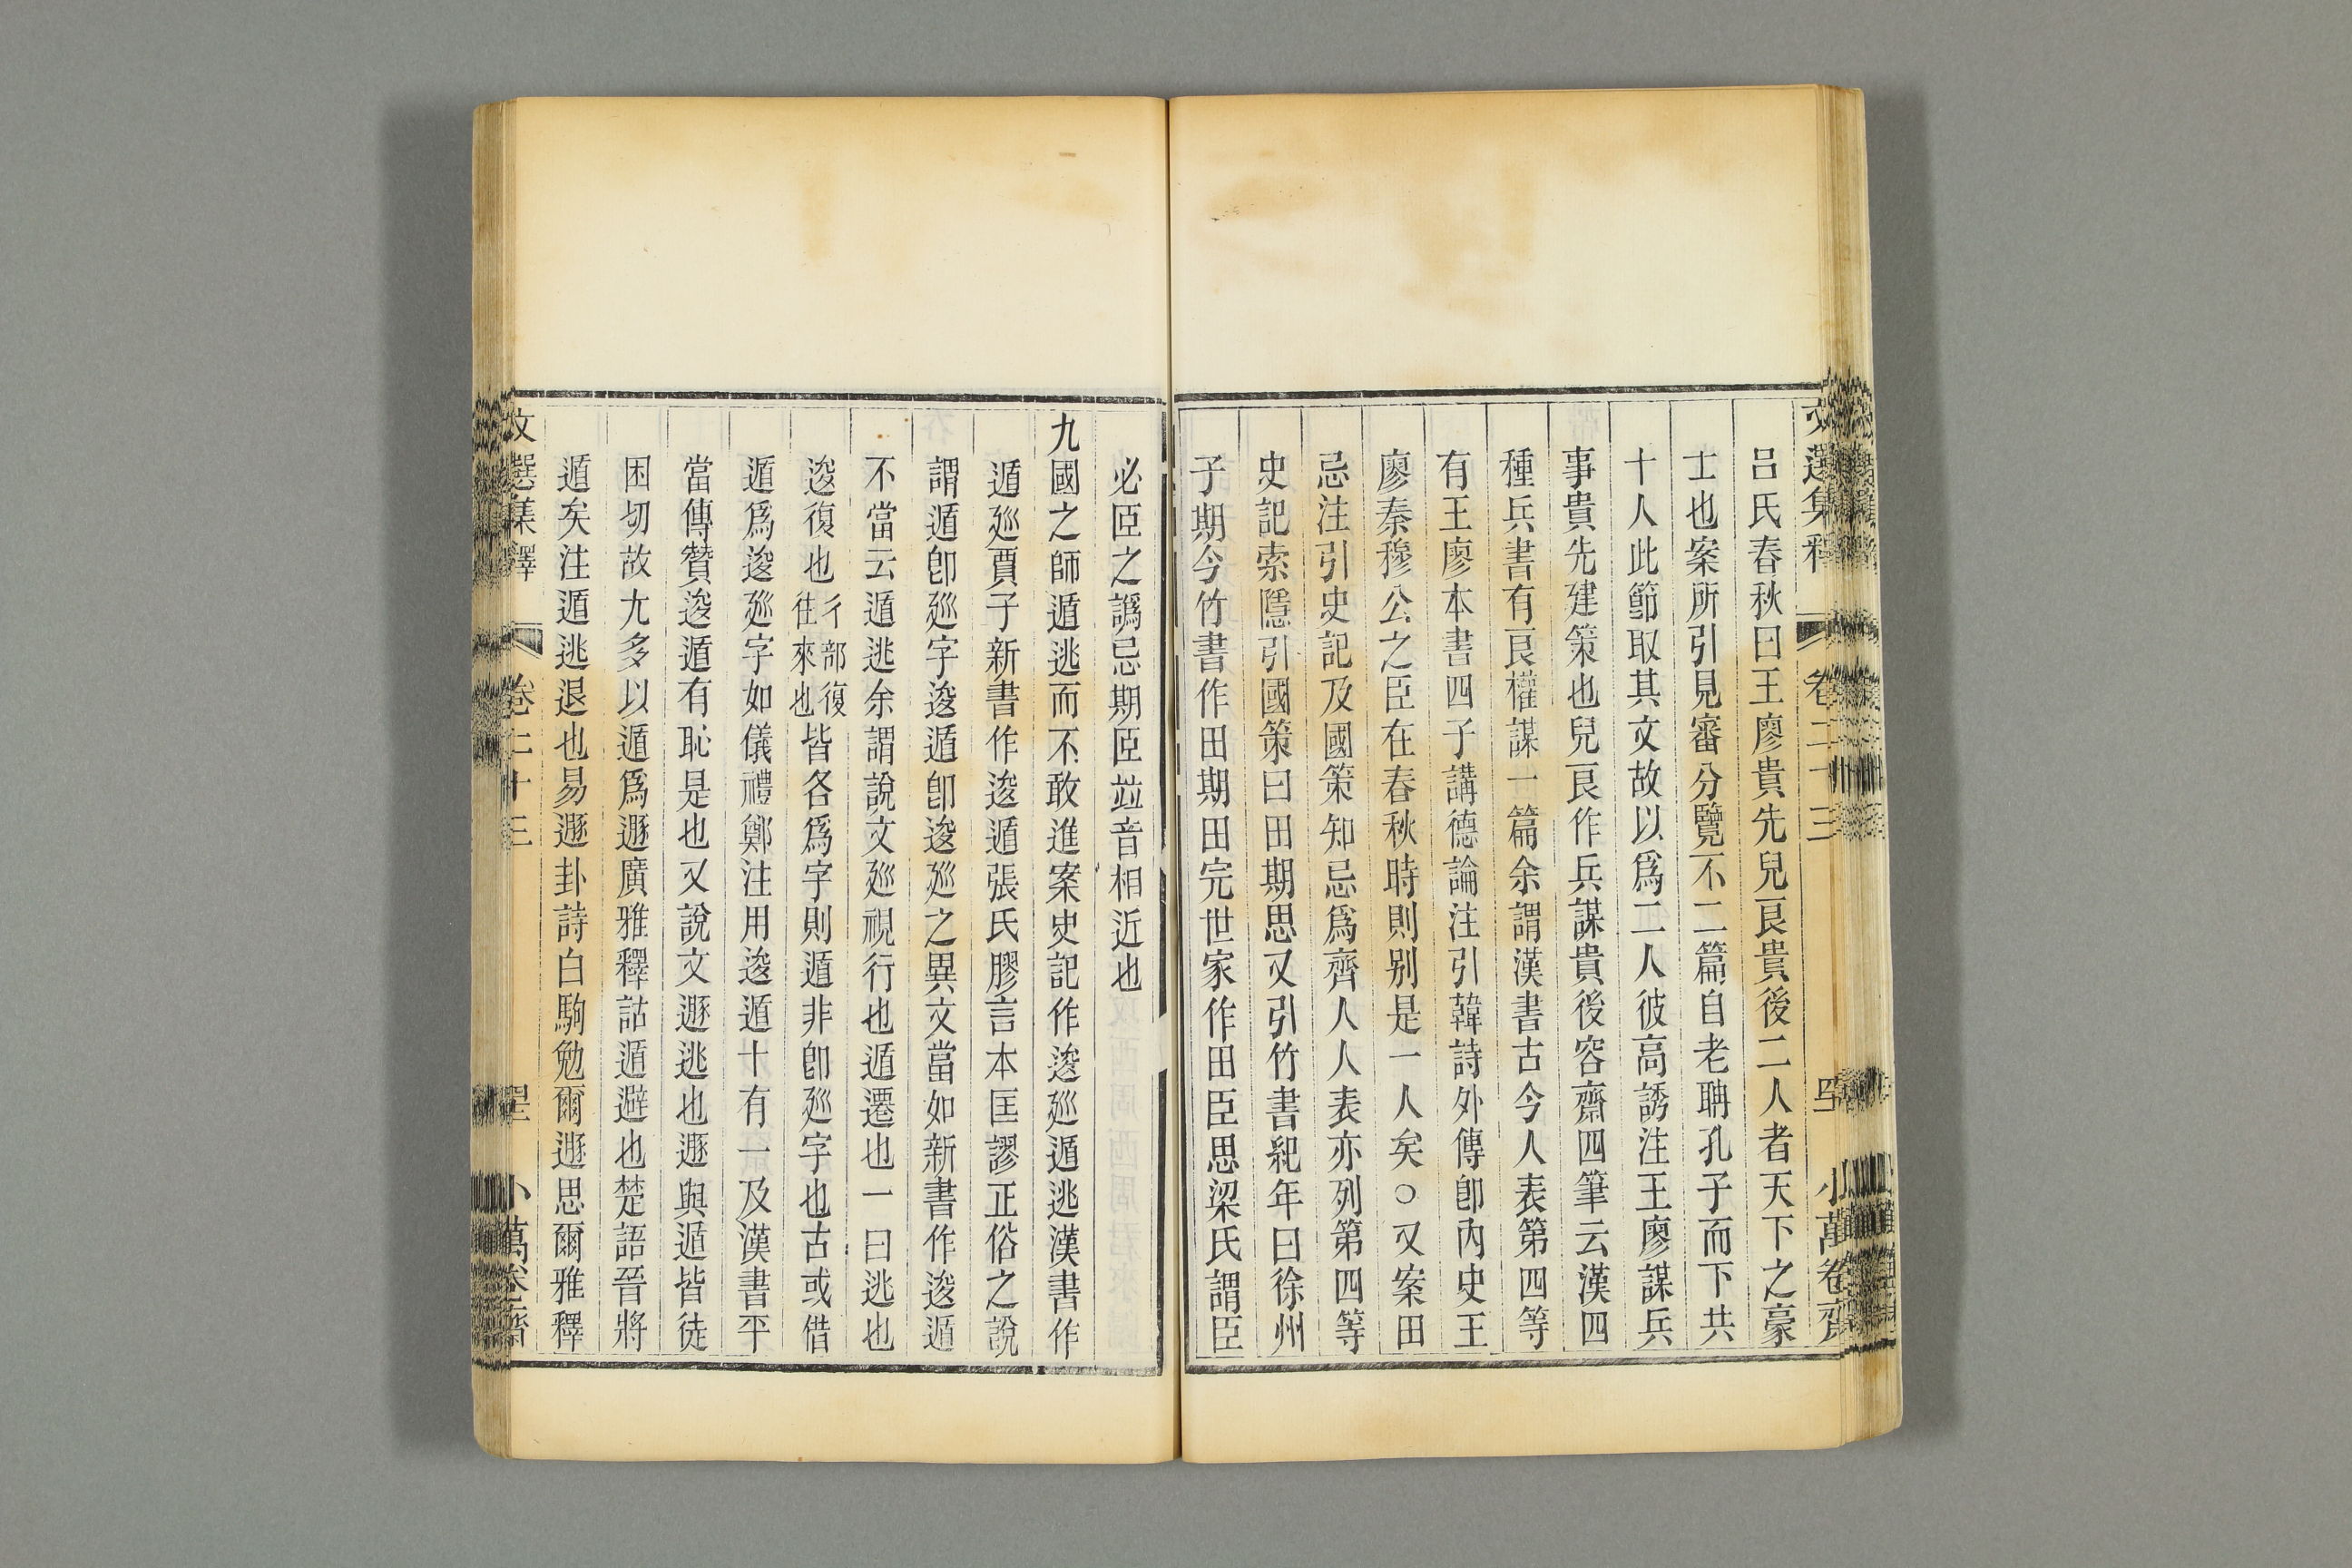 文選集釋 卷二十三 小萬卷齋
呂氏春秋曰王廖貴先兒良貴後二人者天下之豪
士也案所引見審分覽不二篇自老聃孔子而下共
十人此節取其文故以爲二人彼高誘注王廖謀兵
事貴先建策也兒良作兵謀貴後容齋四筆云漢四
種兵書有良權謀一篇余謂漢書古今人表第四等
有王廖本書四子講德論注引韓詩外傳卽內史王
廖秦穆公之臣在春秋時則別是一人矣○又案田
忌注引史記及國策知忌爲齊人人表亦列第四等
史記索隱引國策曰田期思又引竹書紀年曰徐州
子期今竹書作田期田完世家作田臣思梁氏謂臣
必臣之譌忌期臣竝音相近也
九國之師遁逃而不敢進案史記作逡廵遁逃漢書作
遁廵賈子新書作逡遁張氏膠言本匡謬正俗之說
謂遁卽廵字逡遁卽逡廵之異文當如新書作逡遁
不當云遁逃余謂說文廵視行也遁遷也一曰逃也
逡復也彳部復往來也皆各爲字則遁非卽廵字也古或借
遁爲逡廵字如儀禮鄭注用逡遁十有一及漢書平
當傳贊逡遁有恥是也又說文遯逃也遯與遁皆徒
困切故尢多以遁爲遯廣雅釋詁遁避也楚語晉將
遁矣注遁逃退也易遯卦詩白駒勉爾遯思爾雅釋
文選集釋 卷二十三 小萬卷齋